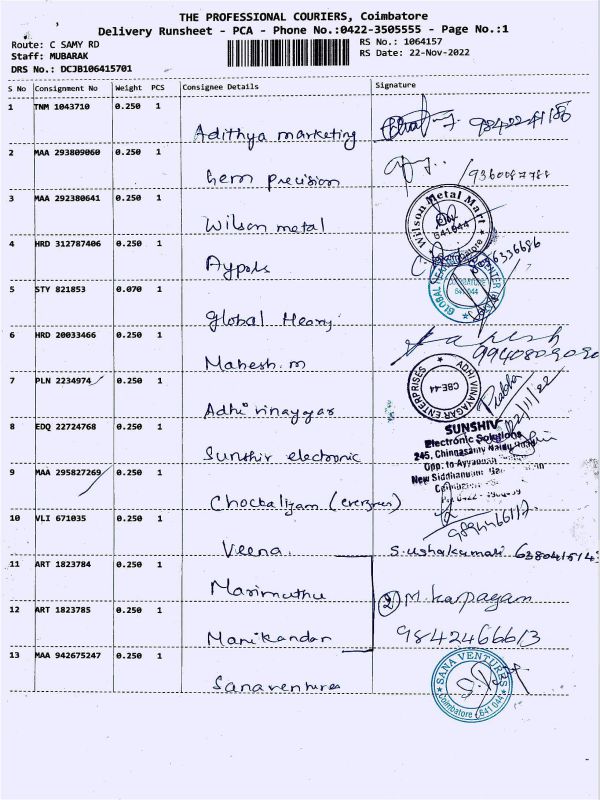 THE PROFESSIONAL COURIERS, Coimbatore
Delivery Runsheet - PCA - Phone No.:0422-3505555 - Page No.:1
Route: C SAMY RD RS No.: 1064157
Staff: MUBARAK RS Date: 22-Nov-2022
DRS No.: DCJB106415701
S No Consignment No Weight PCS Consignee Details Signature
1 TNM 1043710 0.250 1
Adithya marketing
2 MAA 293809060 0.250 1
Gem precision
3 MAA 292380641 0.250 1
Wilson metal
Wilson Metal Mart
641044
Coimbatore
4 HRD 312787406 0.250 1
Aypols
5 STY 821853 0.070 1
Global Hearing
GLOBAL
COIMBATORE
641 044
6 HRD 20033466 0.250 1
Mahesh.m
7 PLN 2234974 0.250 1
Adhi vinaygar
ADHI VINAYAGAR ENTERPRISES
CBE-44
Prabha
8 EDQ 22724768 0.250 1
Sunshiv electronic
SUNSHIV
Electronic Solutions
245, Chinnasamy Naidu Road
Opp. to Ayyappan
New Siddhapudur
9 MAA 295827269 0.250 1
Chockaligam (evergreen)
10 VLI 671035 0.250 1
Veena
S.ushakumari
11 ART 1823784 0.250 1
Marimuthu
2 M.karpagam
12 ART 1823785 0.250 1
Manikandan
9842466613
13 MAA 942675247 0.250 1
Sanaventures
SANA VENTURES
Coimbatore 641 044